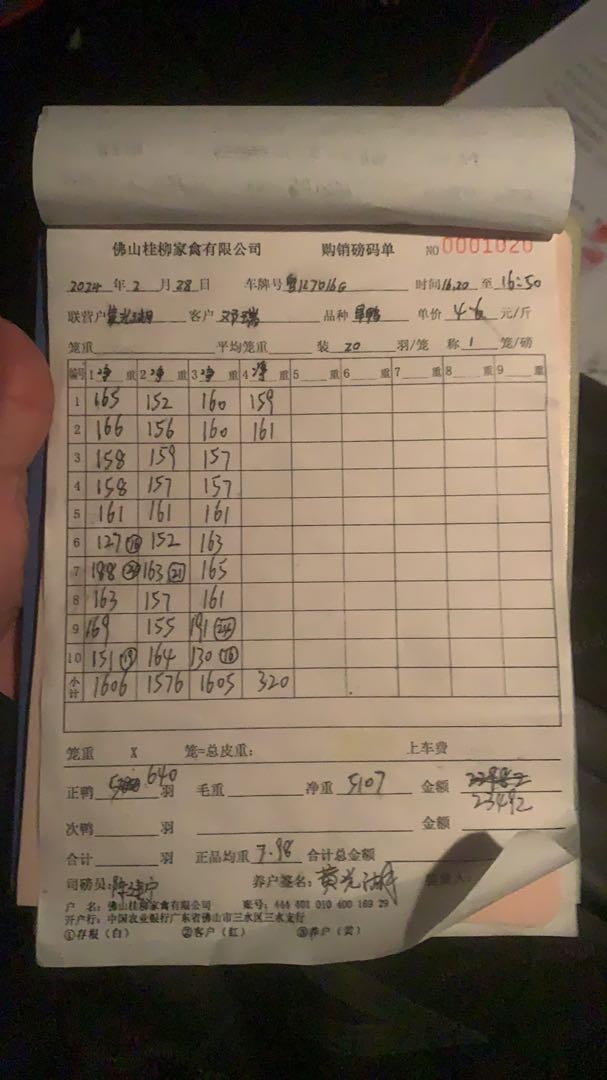 佛山桂柳家禽有限公司 购销磅码单 NO 0001020
2024 年 2 月 28 日 车牌号 时间 16.20 至 16:50
联营户 黄光湖 客户 邓瑞 品种 单价 4.6 元/斤
笼重 平均笼重 装 20 羽/笼 称 1 笼/磅
编号 1 净 重 2 净 重 3 净 重 4 净 重 5 重 6 重 7 重 8 重 9 重
1 165 152 160 159
2 166 156 160 161
3 158 159 157
4 158 157 157
5 161 161 161
6 127 152 163
7 188 163 21 165
8 163 157 161
9 169 155 191 24
10 151 19 164 130 16
小计 1606 1576 1605 320
笼重 X 笼=总皮重: 上车费
正鸭 640 羽 毛重 净重 5107 金额 23492
次鸭 羽 金额
合计 羽 正品均重 7.98 合计总金额
司磅员: 养户签名: 黄光湖
户 名: 佛山桂柳家禽有限公司 账号: 444 401 010 400 169 29
开户行: 中国农业银行广东省佛山市三水区三水支行
①存根(白) ②客户(红) ③养户(黄)